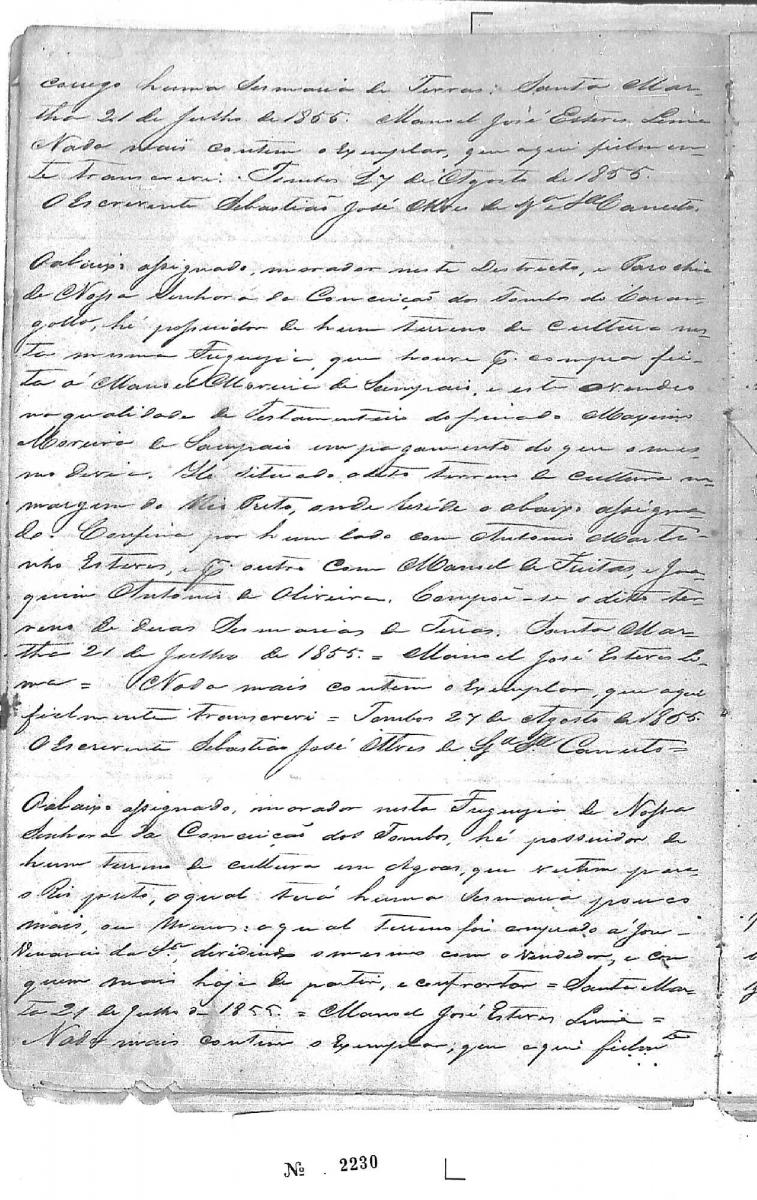 corrego huma Sesmaria de Terras. Santa Mar-
tha 21 de Julho de 1855. Manoel José Esteves Lima
Nada mais contem o Exemplar, que aqui fielmen-
te transcrevi. Tombos 27 de Agosto de 1855.
O Escrevente Sebastião José Alves de Sª Canuto.
O abaixo assignado, morador neste Destricto, e Parochia
de Nossa Senhora da Conceição dos Tombos do Caran-
golla, hé possuidor de hum terreno de cultura nes-
ta mesma Freguezia, que houve p. compra fei-
ta á Manoel Moreira de Sampaio, e este vendeo
na qualidade de Testamenteiro do finado
Moreira de Sampaio em pagamento do que o mes-
mo devia. Hé situado o dito terreno de cultura na
margem do Rio Preto, onde reside o abaixo assigna-
do. Confina por hum lado com Antonio Marti-
nho Esteves, e p. outro com Manoel de Freitas, e Joa-
quim Antonio de Oliveira. Compoe-se o ditto ter-
reno de duas Sesmarias de Terras. Santa Mar-
tha 21 de Julho de 1855. = Manoel José Esteves Li-
ma = Nada mais contem o Exemplar, que aqui
fielmente transcrevi = Tombos 27 de Agosto de 1855.
O Escrevente Sebastião José Alves de Sª Canuto =
O abaixo assignado, morador nesta Freguezia de Nossa
Senhora da Conceição dos Tombos, hé possuidor de
hum terreno de cultura em Agoas, que vertem para
o Rio preto, o qual terá huma Sesmaria pouco
mais, ou Menos: o qual Terreno foi comprado á
Venancio da Sª, dividindo o mesmo com o Vendedor, e com
quem mais haja de partir, e confrontar = Santa Mar-
ta 21 de Julho de 1855. = Manoel José Esteves Lima =
Nada mais contem o Exemplar, que aqui fielmte
Nº 2230